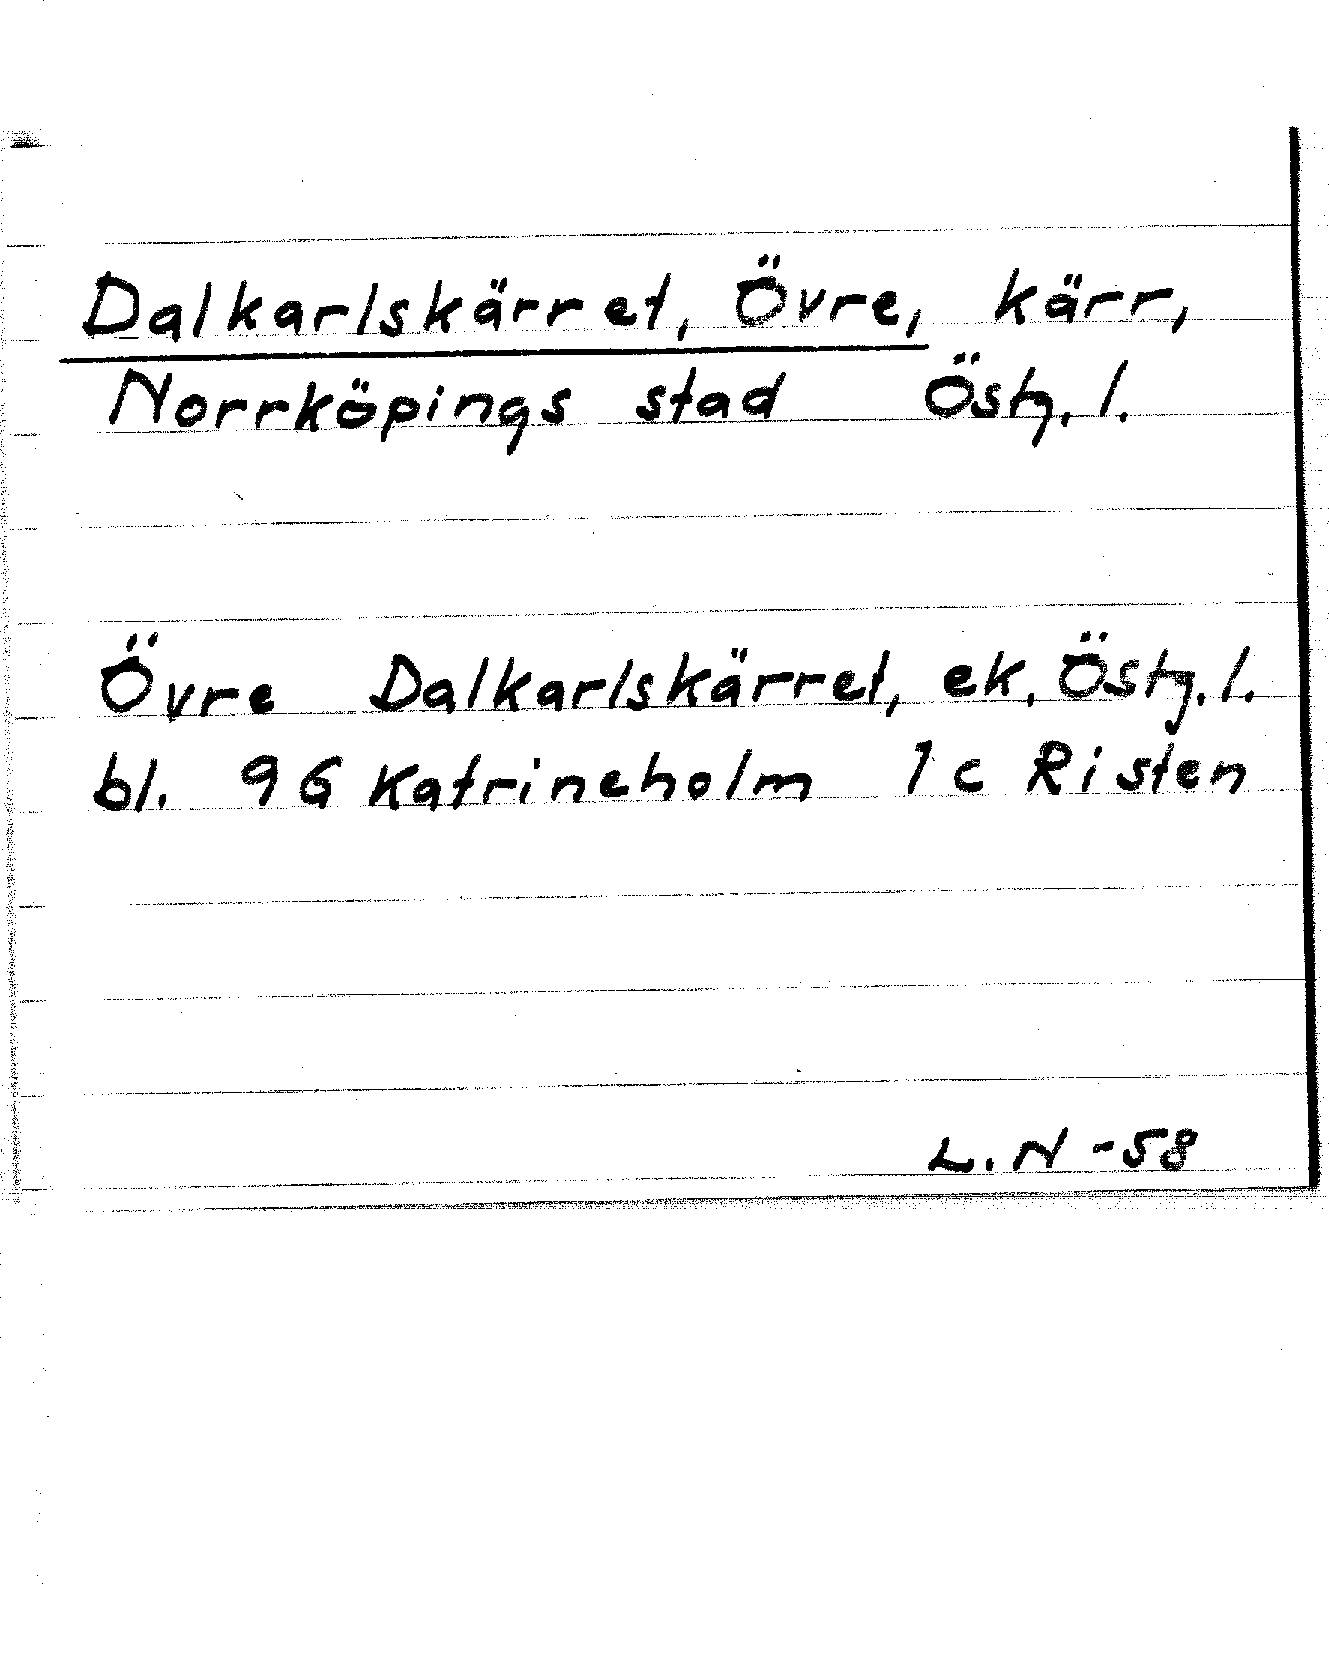 Dalkarlskärret, Övre, kärr,
Norrköpings stad Östg. l.
Övre Dalkarlskärret, ek. Östg. l.
bl. 9G Katrineholm 1c Risten
L. N -58